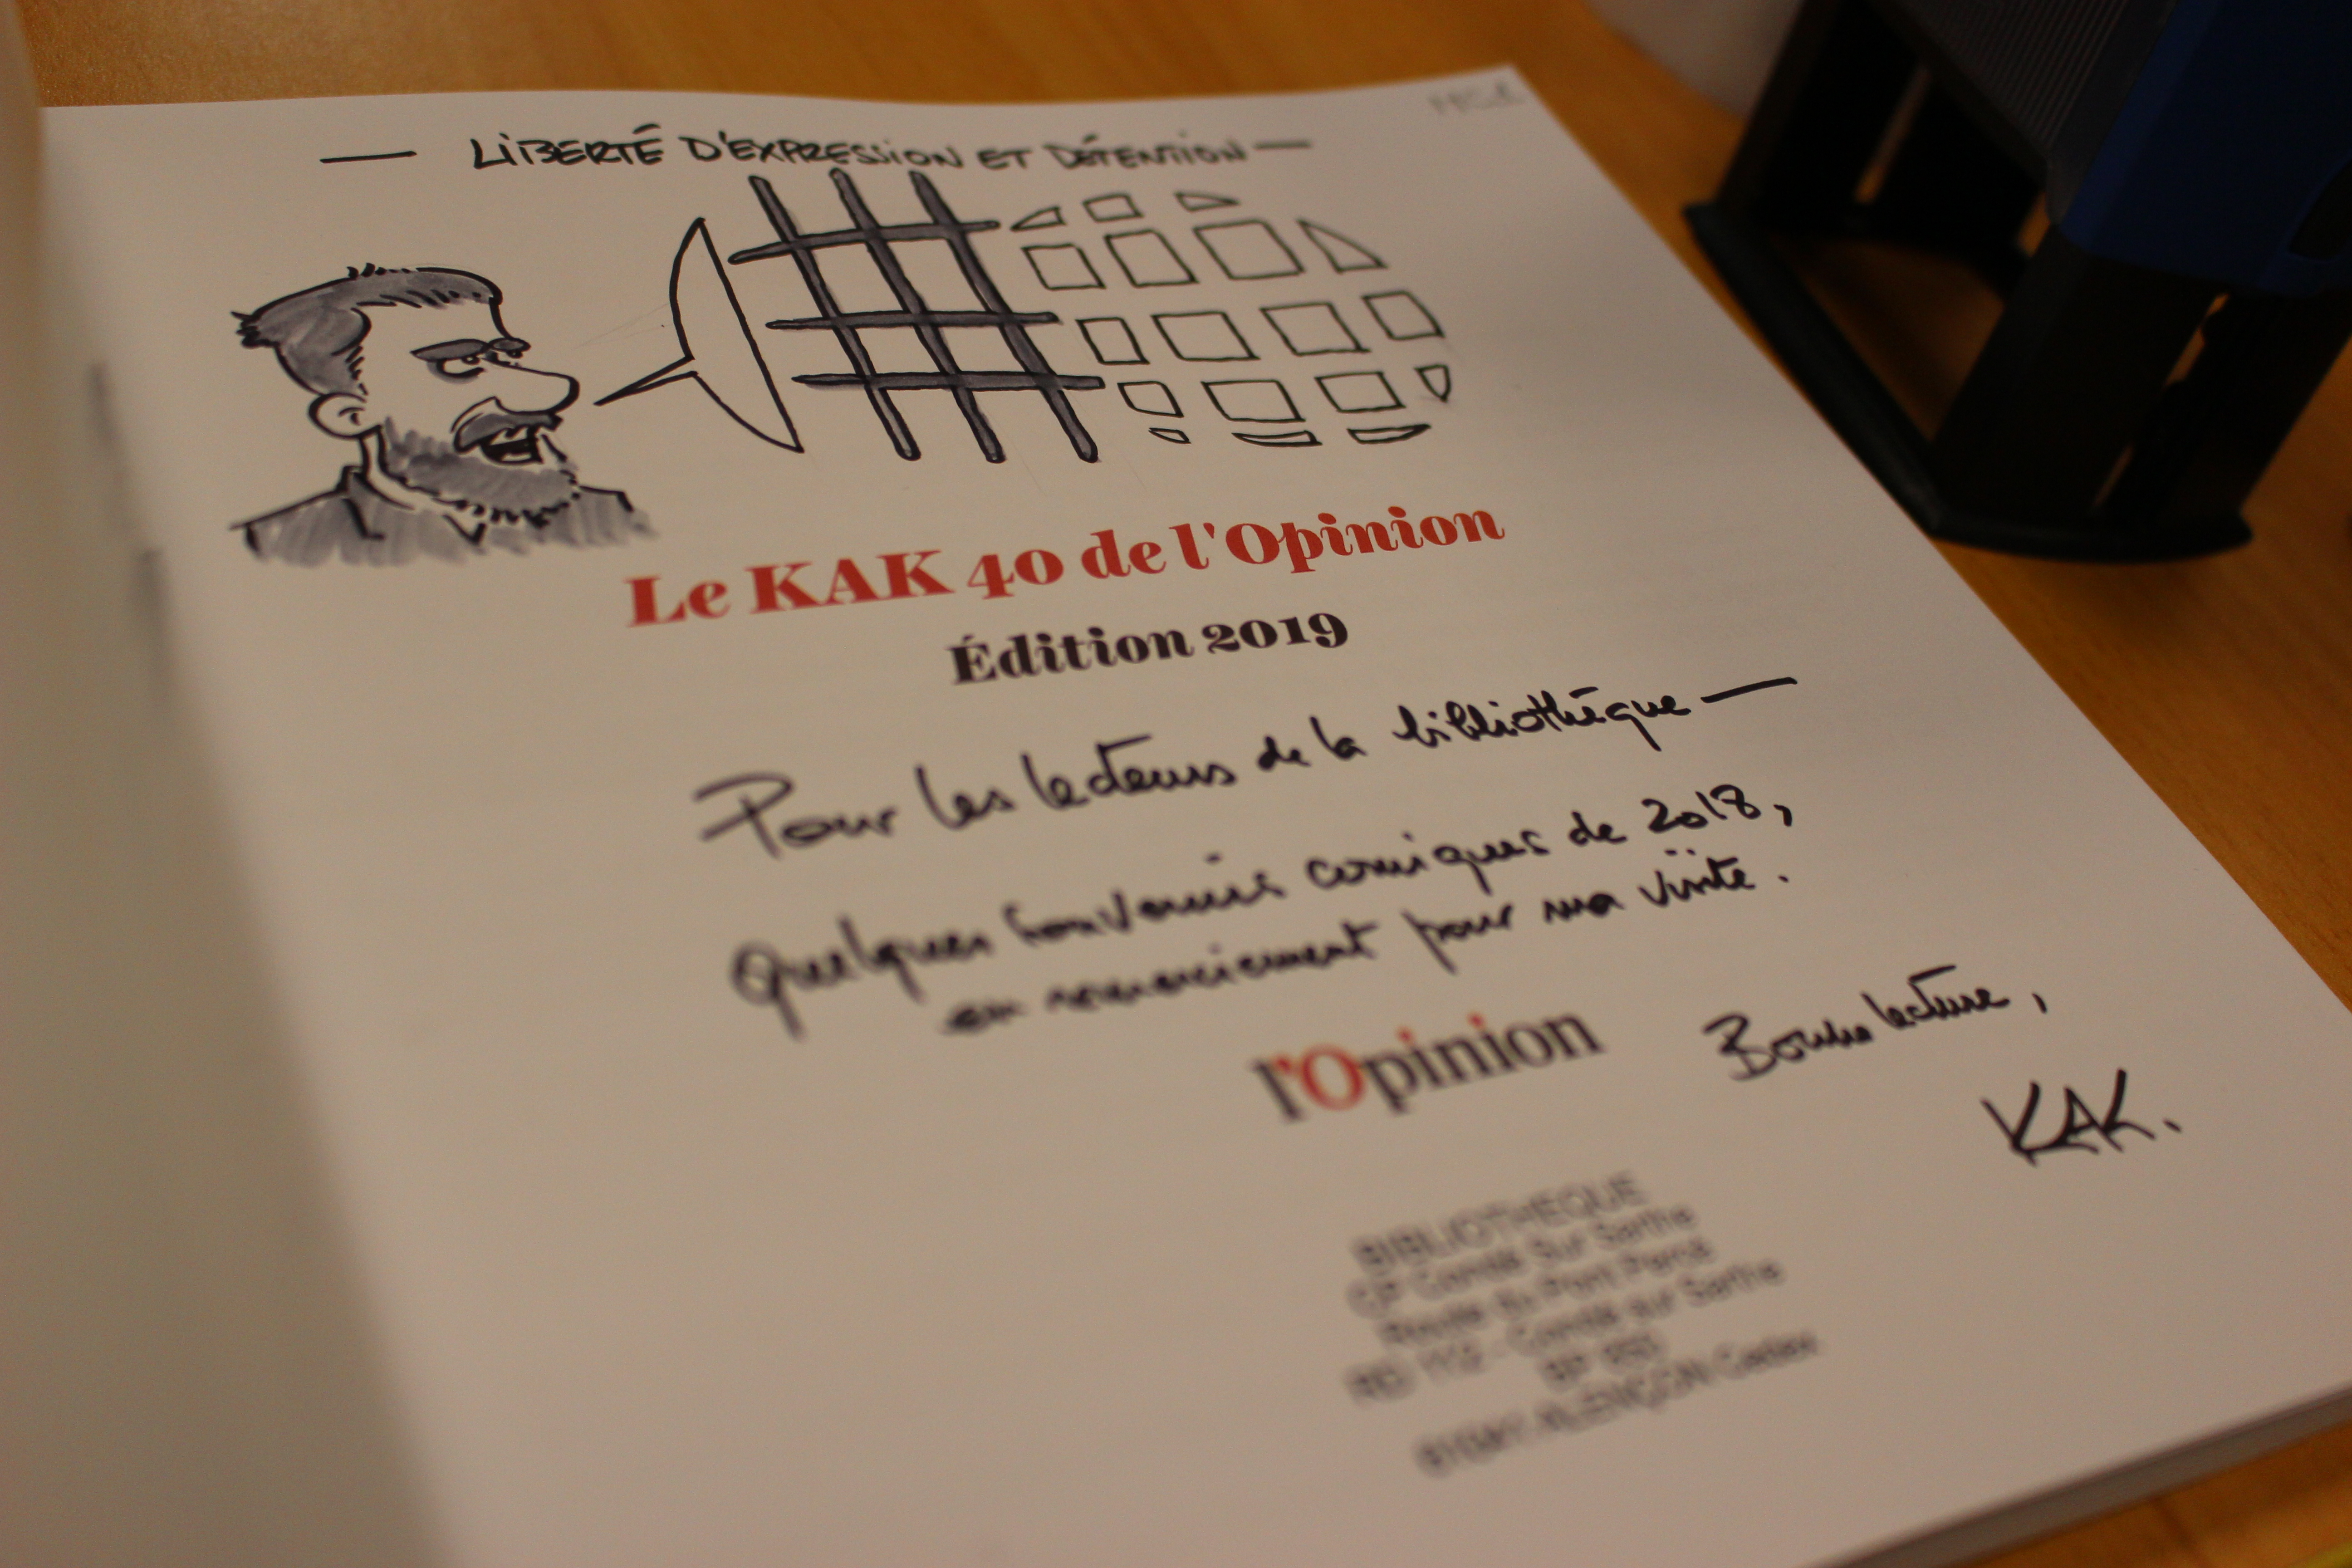 — LIBERTÉ D'EXPRESSION ET DÉTENTION —
Le KAK 40 de l'Opinion
Édition 2019
Pour les lecteurs de la bibliothèque —
Quelques souvenirs comiques de 2018,
en remerciement pour ma visite.
l'Opinion
Bonne lecture,
KAK.
BIBLIOTHEQUE
CP Condé Sur Sarthe
Route du Pont Percé
RD 112 - Condé sur Sarthe
BP
ALENÇON Cedex